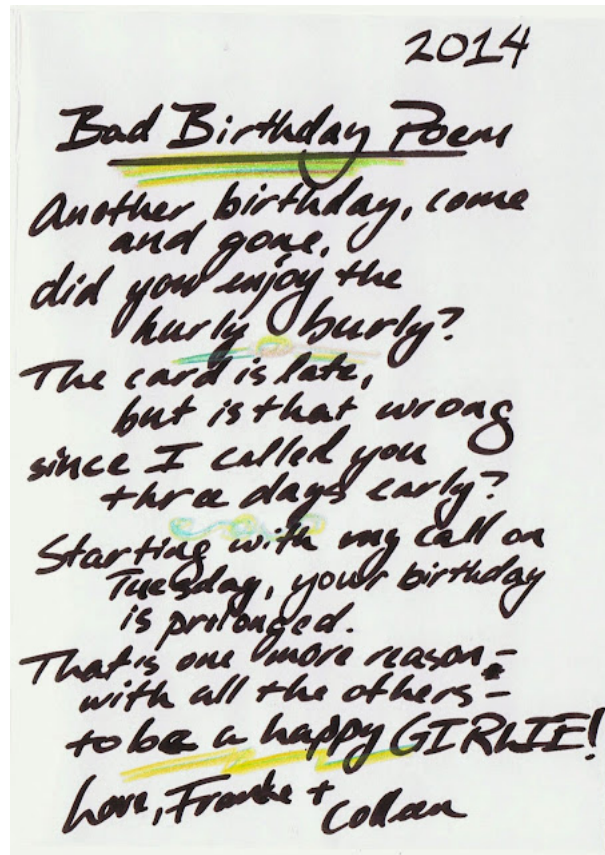 2014
Bad Birthday Poem
Another birthday, come
and gone,
did you enjoy the
hurly burly?
The card is late,
but is that wrong
since I called you
three days early?
Starting with my call on
Tuesday, your birthday
is prolonged.
That is one more reason -
with all the others -
to be a happy GIRLIE!
Love, Franke +
Colleen